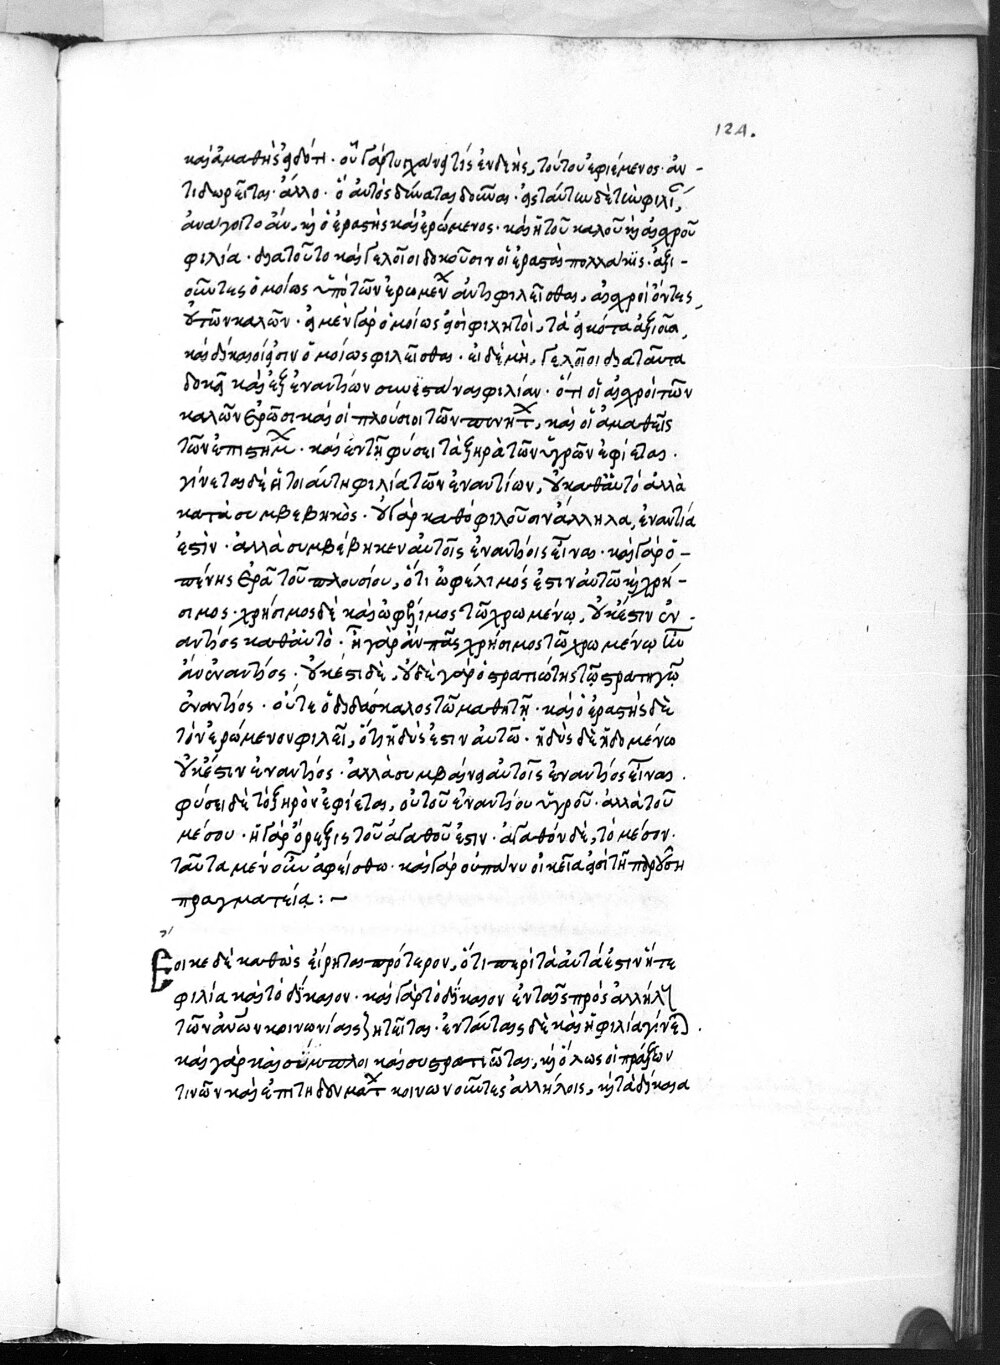 124.
καὶ ἀμαθὴς εἰδότι· οὗ γὰρ τυγχάνει τίς ἐνδεὴς, τούτου ἐφιέμενος· ἀν-
τιδωρεῖται ἄλλο· ὃ αὐτὸς δύναται δοῦναι· εἰς ταύτην δὲ τὴν φιλίαν,
ἀνάγοιτο ἂν, καὶ ὁ ἐραστὴς καὶ ἐρώμενος· καὶ ἡ τοῦ καλοῦ καὶ αἰσχροῦ
φιλία· διὰ τοῦτο καὶ γελοῖοι δοκοῦσιν οἱ ἐρασταὶ πολλάκις· ἀξι-
οῦντες ὁμοίως ὑπὸ τῶν ἐρωμένων ἀντιφιλεῖσθαι, αἰσχροὶ ὄντες,
ὑπὸ τῶν καλῶν· εἰ μὲν γὰρ ὁμοίως εἰσὶ φιλητοὶ, τὰ εἰκότα ἀξιοῦσι,
καὶ δίκαιοί εἰσιν ὁμοίως φιλεῖσθαι· εἰ δὲ μὴ, γελοῖοι διὰ ταῦτα
δοκεῖ καὶ ἐξ ἐναντίων συνιστάναι φιλίαν· ὅτι οἱ αἰσχροὶ τῶν
καλῶν ἐρῶσι καὶ οἱ πλούσιοι τῶν πενήτων, καὶ οἱ ἀμαθεῖς
τῶν ἐπιστημόνων· καὶ ἐν τῇ φύσει τὰ ξηρὰ τῶν ὑγρῶν ἐφίεται·
γίνεται δὲ ἡ τοιαύτη φιλία τῶν ἐναντίων, οὐ καθ' αὑτὸ ἀλλὰ
κατὰ συμβεβηκὸς· οὐ γὰρ καθὸ φιλοῦσιν ἄλληλα, ἐναντία
ἐστὶν· ἀλλὰ συμβέβηκεν αὐτοῖς ἐναντίοις εἶναι· καὶ γὰρ ὁ-
πένης ἐρᾷ τοῦ πλουσίου, ὅτι ὠφέλιμός ἐστιν αὐτῷ καὶ χρή-
σιμος· χρήσιμος δὲ καὶ ὠφέλιμος τῷ χρωμένῳ, οὐκ ἔστιν ἐν-
αντίος καθ' αὑτὸ· ἦ γὰρ ἂν πᾶς χρήσιμος τῷ χρωμένῳ ἦν
ἂν ἐναντίος· οὐκ ἔστι δὲ, οὐδὲ γὰρ ὁ στρατιώτης τῷ στρατηγῷ
ἐναντίος· οὔτε ὁ διδάσκαλος τῷ μαθητῇ· καὶ ὁ ἐραστὴς δὲ
τὸν ἐρώμενον φιλεῖ, ὅτι ἡδύς ἐστιν αὐτῷ· ἡδὺς δὲ ἡδομένῳ
οὐκ ἔστιν ἐναντίος· ἀλλὰ συμβαίνει αὐτοῖς ἐναντίος εἶναι·
φύσει δὲ τὸ ξηρὸν ἐφίεται, οὐ τοῦ ἐναντίου ὑγροῦ· ἀλλὰ τοῦ
μέσου· ἡ γὰρ ὄρεξις τοῦ ἀγαθοῦ ἐστιν· ἀγαθὸν δὲ, τὸ μέσον·
ταῦτα μὲν οὖν ἀφείσθω· καὶ γὰρ οὐ πάνυ οἰκεῖα εἰσὶ τῇ παρούσῃ
πραγματείᾳ: –
Ἔοικε δὲ καθὼς εἴρηται πρότερον, ὅτι περὶ τὰ αὐτά ἐστιν ἥτε
φιλία καὶ τὸ δίκαιον· καὶ γὰρ τὸ δίκαιον ἐν ταῖς πρὸς ἀλλήλους
τῶν ἀνθρώπων κοινωνίαις ζητεῖται· ἐν ταύταις δὲ καὶ ἡ φιλία γίνεται·
καὶ γὰρ καὶ σύμπλοι καὶ συστρατιῶται, καὶ ὅλως οἱ πράξεων
τινῶν καὶ ἐπιτηδευμάτων κοινωνοῦντες ἀλλήλοις, καὶ τὰ δίκαια